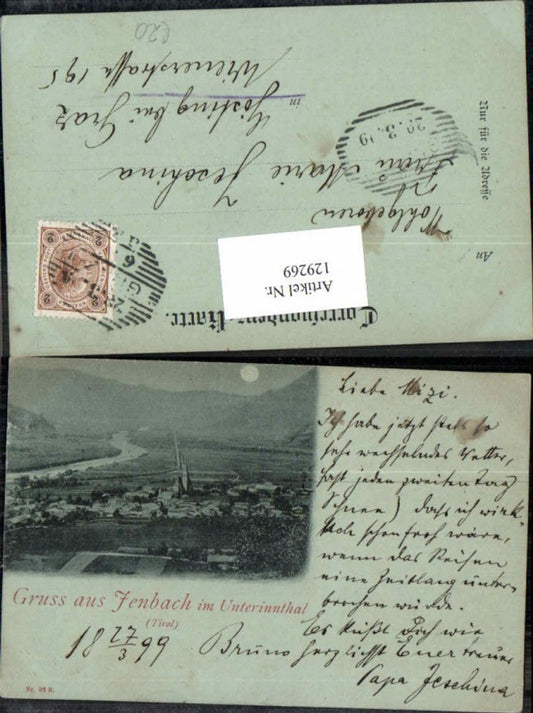 An
Nur für die Adresse
Correspondenz-Karte.
Wohlgeboren
Frau Marie Jeschina
in Gösting bei Graz
Wienerstrasse 195
Artikel Nr.
129269
2 2
Liebe Mizi.
Ich habe jetzt stets so
sehr wechselndes Wetter,
fast jeden zweiten Tag
Schnee) dass ich wirk-
lich schon froh wäre,
wenn das Reisen
eine Zeitlang unter-
brochen würde.
Es küßt Dich wie
Bruno herzlichst Euer treuer
Papa Jeschina
Gruss aus Jenbach im Unterinnthal
(Tirol)
18 27/3 99
Nr. 93 R.